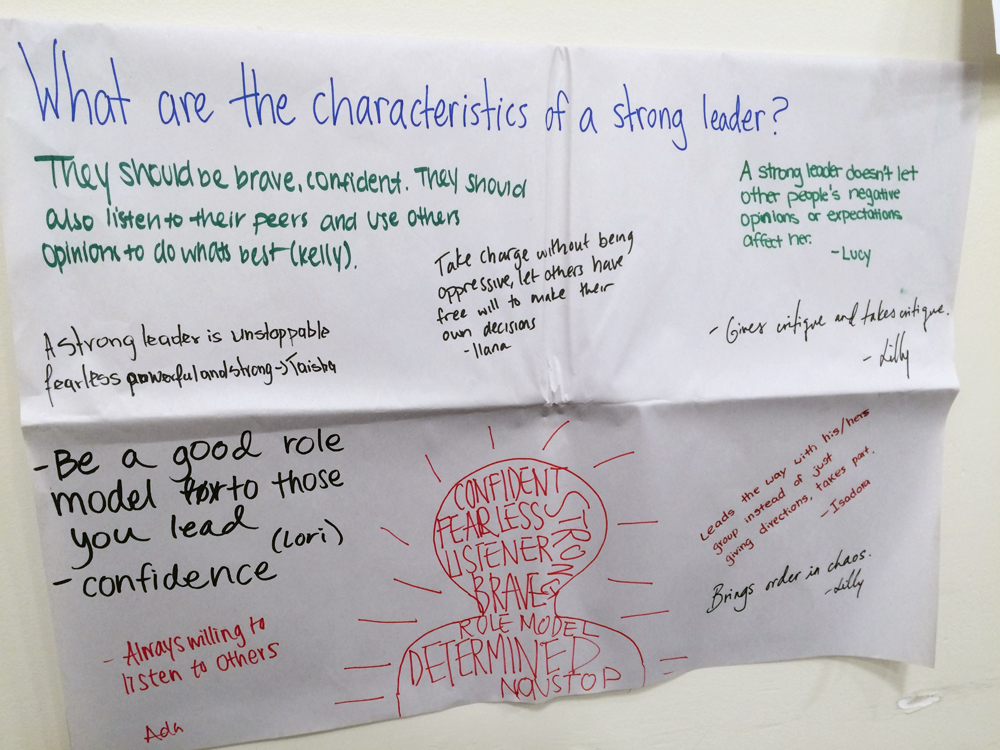 What are the characteristics of a strong leader?
They should be brave, confident. They should
also listen to their peers and use others
opinions to do whats best (Kelly).
A strong leader doesn't let
other people's negative
opinions or expectations
affect her.
-Lucy
Take charge without being
oppressive, let others have
free will to make their
own decisions
-Ilana
- Gives critique and takes critique.
- Lilly
A strong leader is unstoppable
fearless powerful and strong → Taisha
-Be a good role
model to those
you lead
(Lori)
- confidence
CONFIDENT
STRONG
FEARLESS
LISTENER
BRAVE
ROLE MODEL
DETERMINED
NONSTOP
Leads the way with his/hers
group instead of just
giving directions, takes part.
-Isadora
Brings order in chaos.
-Lilly
- Always willing to
listen to others
Ada